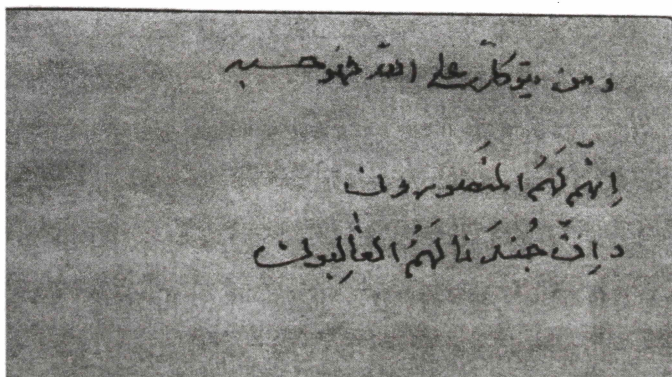 ومن يتوكلّ على الله فهو حسبه
اِنهّم لَهَمُ المنَصورون
و اِنّ جُندَنا لَهَمُ الغٰالِبون